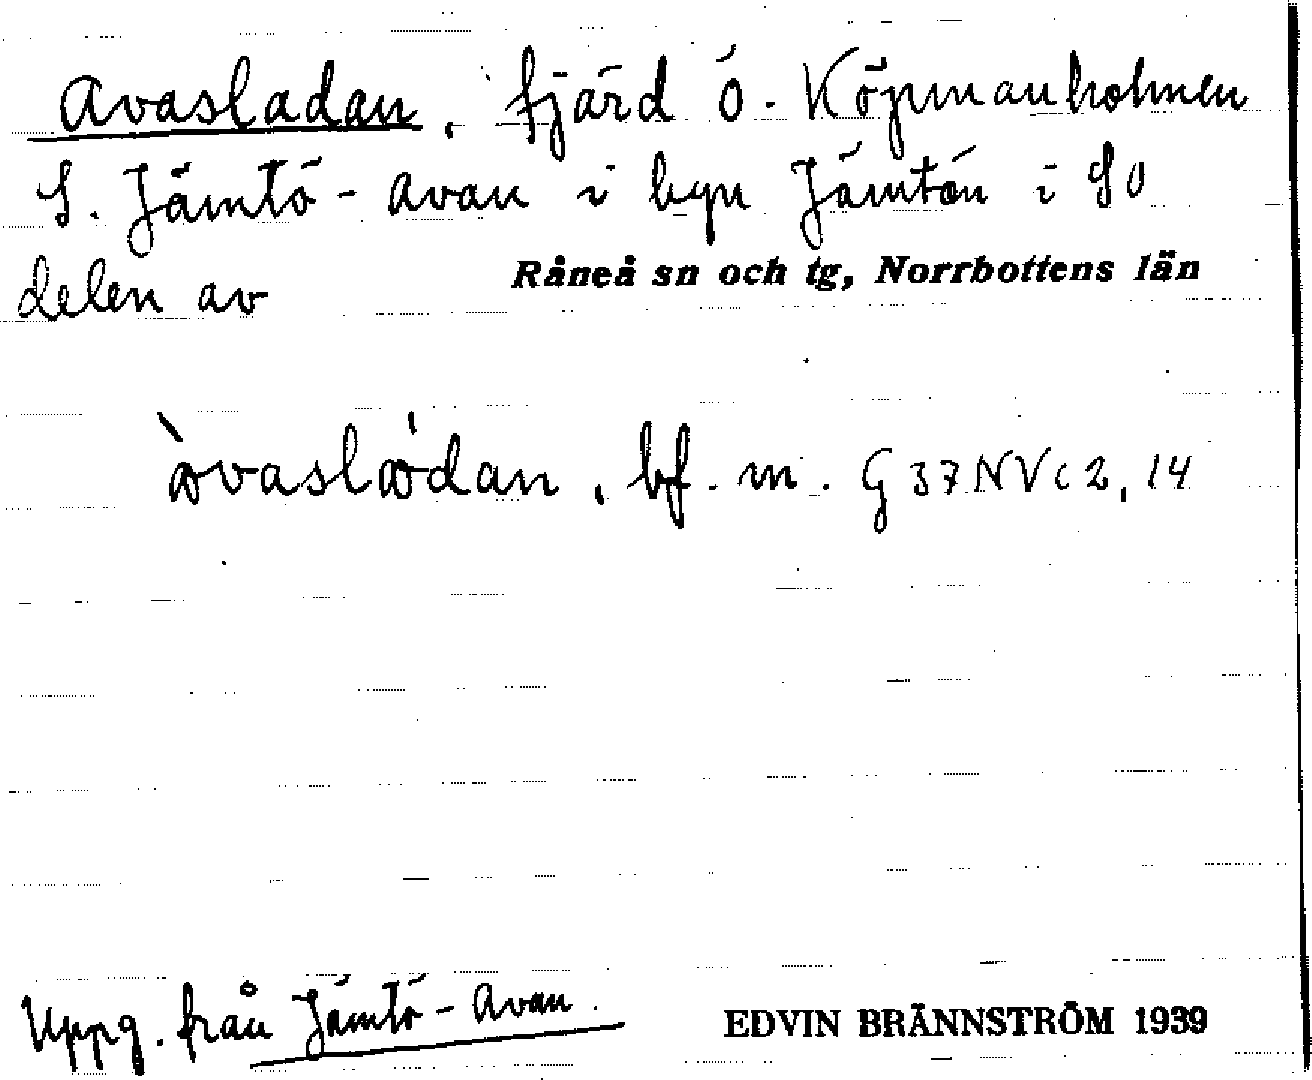 Avasladan, fjärd ö. Köpmanholmen
S. Jämtö-avan i byn Jämtön i SO
delen av Råneå sn och tg, Norrbottens län
àvaslådan, bf. m. G 37 NV c 2, 14
Uppg. från Jämtö-Avan.
EDVIN BRÄNNSTRÖM 1939